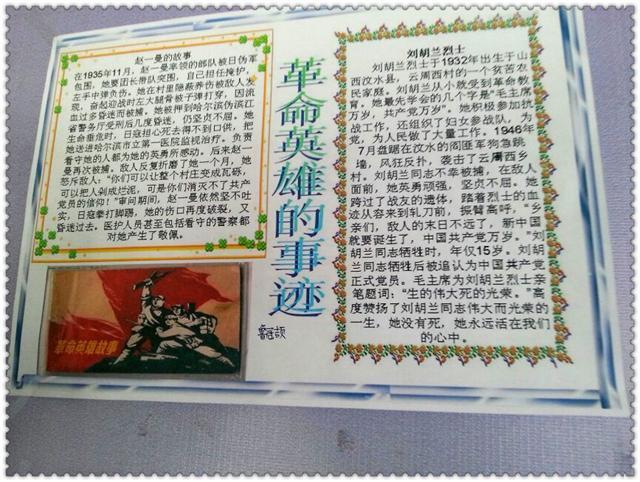 赵一曼的故事
在1935年11月，赵一曼率领的部队被日伪军
包围，她要团长带队突围，自己担任掩护，
左手中弹负伤。她在村里隐蔽养伤被敌人发
现，奋起迎战时左大腿骨被子弹打穿，因流
血过多昏迷而被捕。她被押到哈尔滨伪滨江
省警务厅受刑后几度昏迷，仍坚贞不屈。她
生命垂危时，日寇担心死去得不到口供，把
她送进哈尔滨市立第一医院监视治疗。负责
看守她的人都为她的英勇所感动。后来赵一
曼再次被捕。敌人反复折磨了她一个月，她
怒斥敌人：“你们可以让整个村庄变成瓦砾，
可以把人剁成烂泥，可是你们消灭不了共产
党员的信仰！”审问期间，赵一曼依然坚不吐
实，日寇拳打脚踢，她的伤口再度破裂，又
昏迷过去。医护人员甚至包括看守的警察都
对她产生了敬佩。
革命英雄故事
革命英雄的事迹
刘胡兰烈士
刘胡兰烈士于1932年出生于山
西汶水县，云周西村的一个贫苦农
民家庭。刘胡兰从小就受到革命教
育。她最先学会的几个字是“毛主席
万岁，共产党万岁”。她积极参加抗
战工作，还组织了妇女参战队，为
党，为人民做了大量工作。1946年
7月盘踞在汶水的阎匪军狗急跳
墙，风狂反扑，袭击了云周西乡
村。刘胡兰同志不幸被捕，在敌人
面前，她英勇顽强，坚贞不屈。她
跨过了战友的遗体，踏着烈士的血
迹从容来到轧刀前，振臂高呼，“乡
亲们，敌人的末日不远了，新中国
就要诞生了，中国共产党万岁。”刘
胡兰同志牺牲时，年仅15岁。刘胡
兰同志牺牲后被追认为中国共产党
正式党员。毛主席为刘胡兰烈士亲
笔题词：“生的伟大死的光荣。”高
度赞扬了刘胡兰同志伟大而光荣的
一生，她没有死，她永远活在我们
的心中。